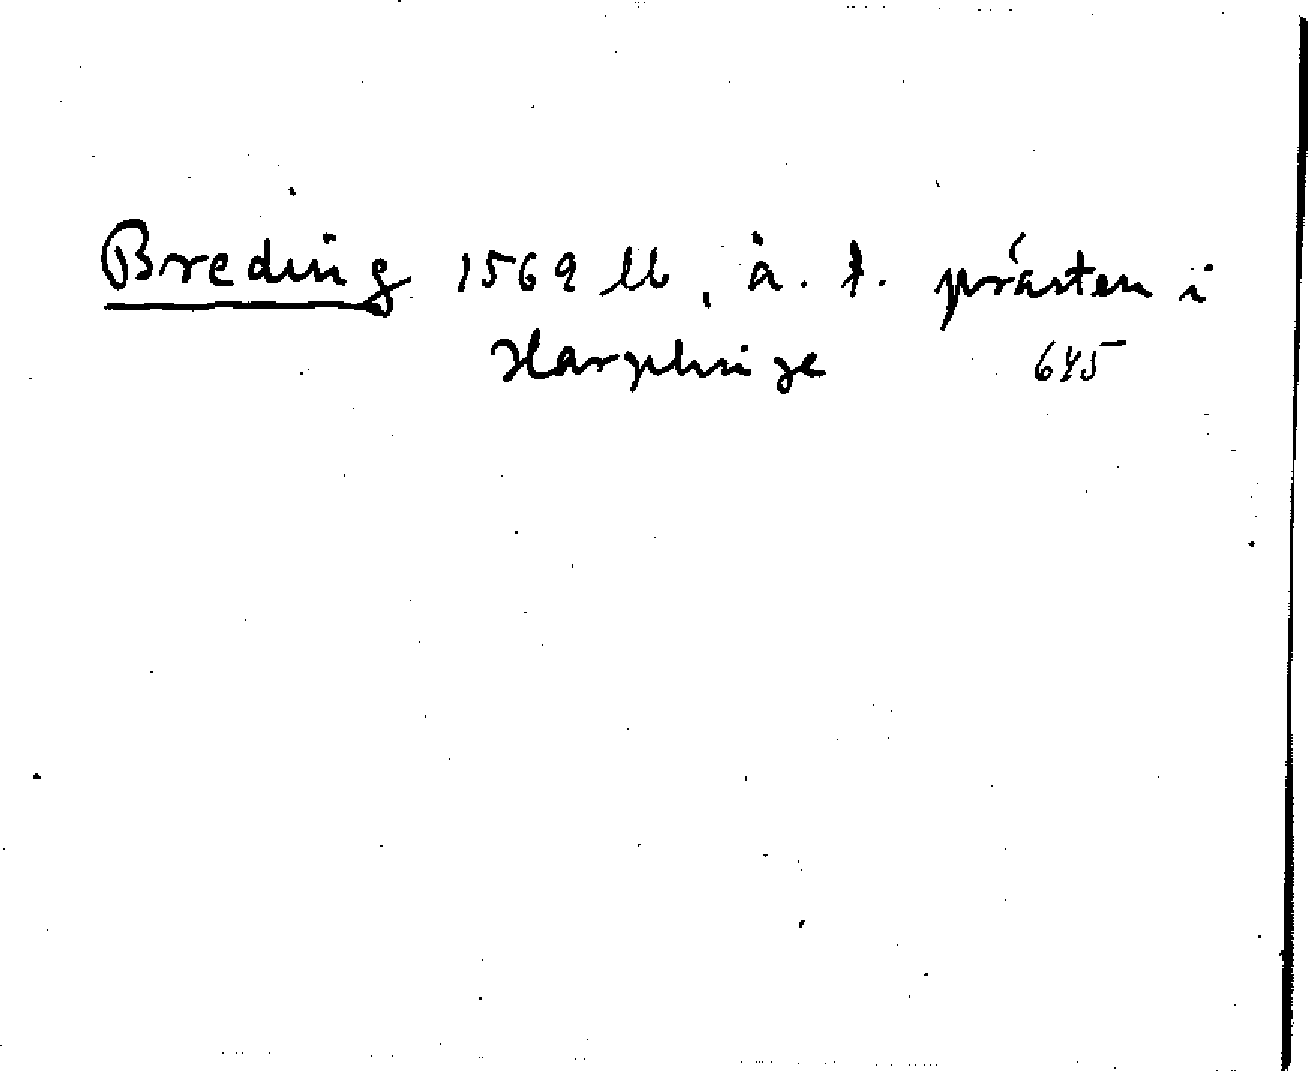 Breding 1569 lb, å. t. prästen i
Harplinge 645